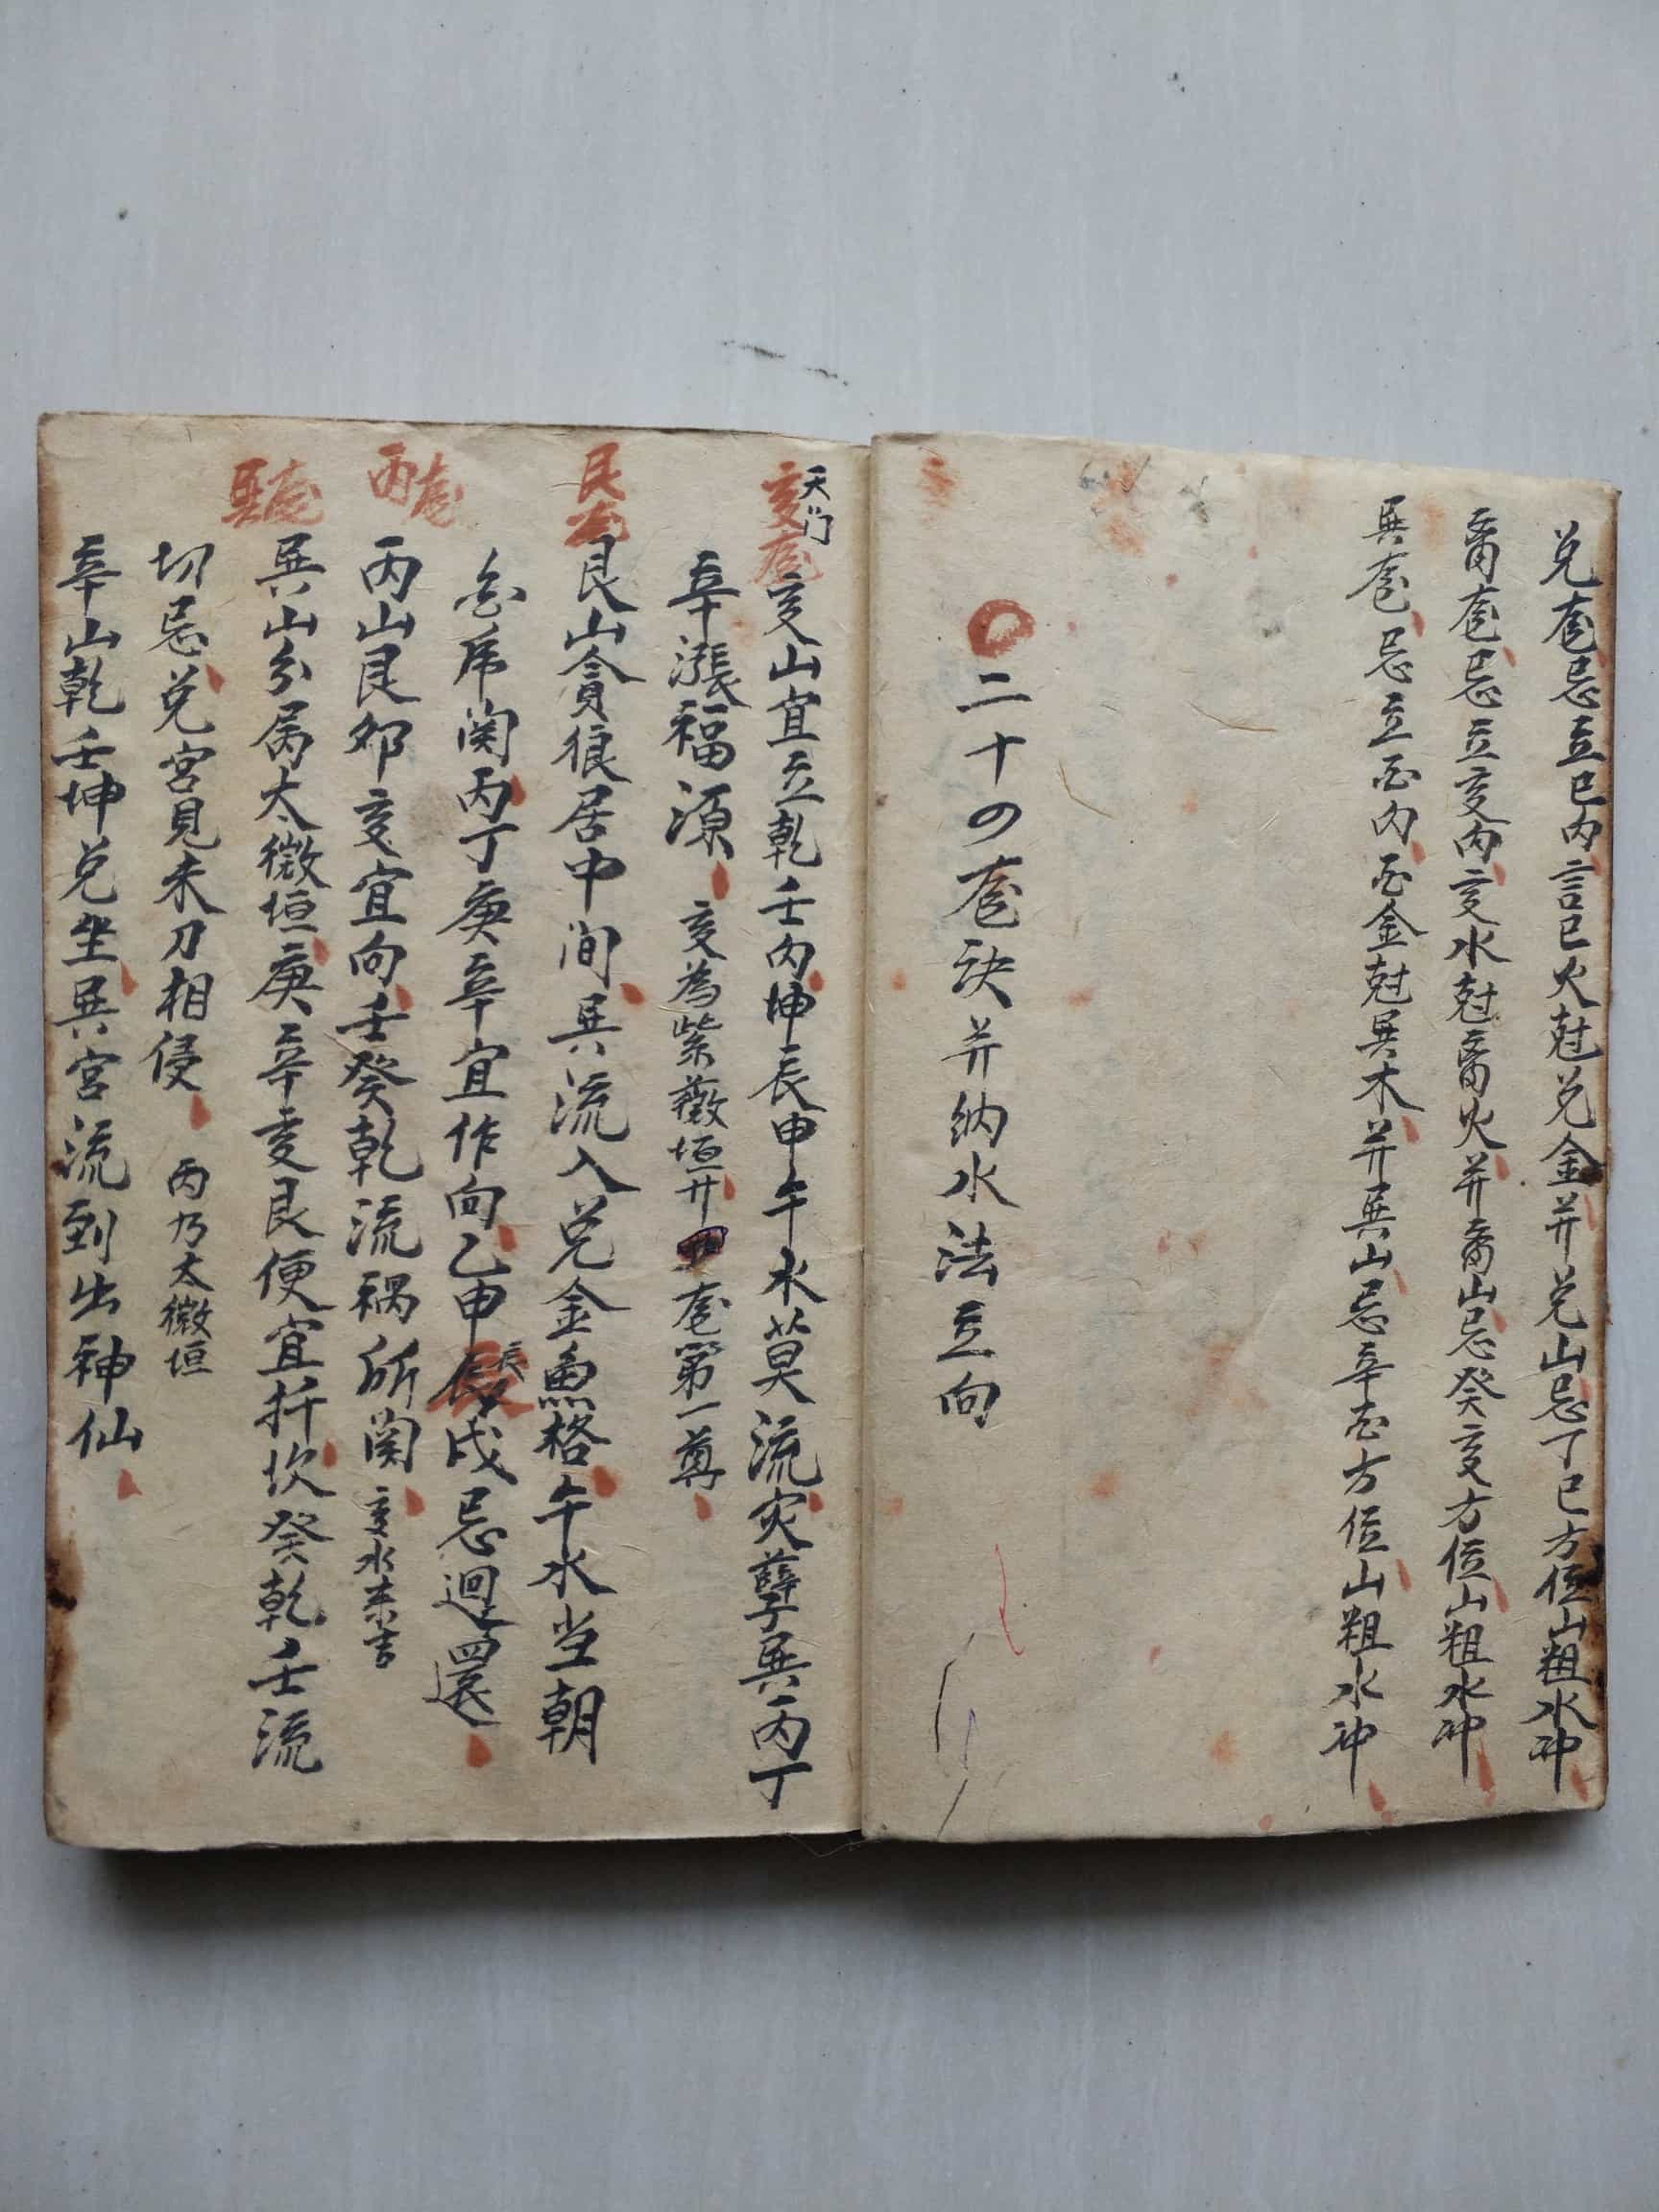 兑龙忌立巳内言巳火尅兑金并兑山忌丁巳方位山粗水冲
离龙忌立亥内亥水尅离火并离山忌癸亥方位山粗水冲
巽龙忌立酉内酉金尅巽木并巽山忌辛酉方位山粗水冲
二十四龙诀并纳水法立向
天门
亥龙
亥山宜立乾壬内坤辰申午水莫流灾孽巽丙丁
辛漲福源 亥為紫薇垣廾龙第一尊
艮龙
艮山貪狼居中间巽流入兑金魚格午水当朝
丙丁庚辛宜作向乙申辰戌忌迴還
丙龙
丙山艮卯亥宜向壬癸乾流禍所関 亥水来吉
巽龙
巽山分属太微垣庚辛亥艮便宜扦坎癸乾壬流
切忌兑宫見未刀相侵 丙乃太微垣
辛山乾壬坤兑坐巽宫流到出神仙